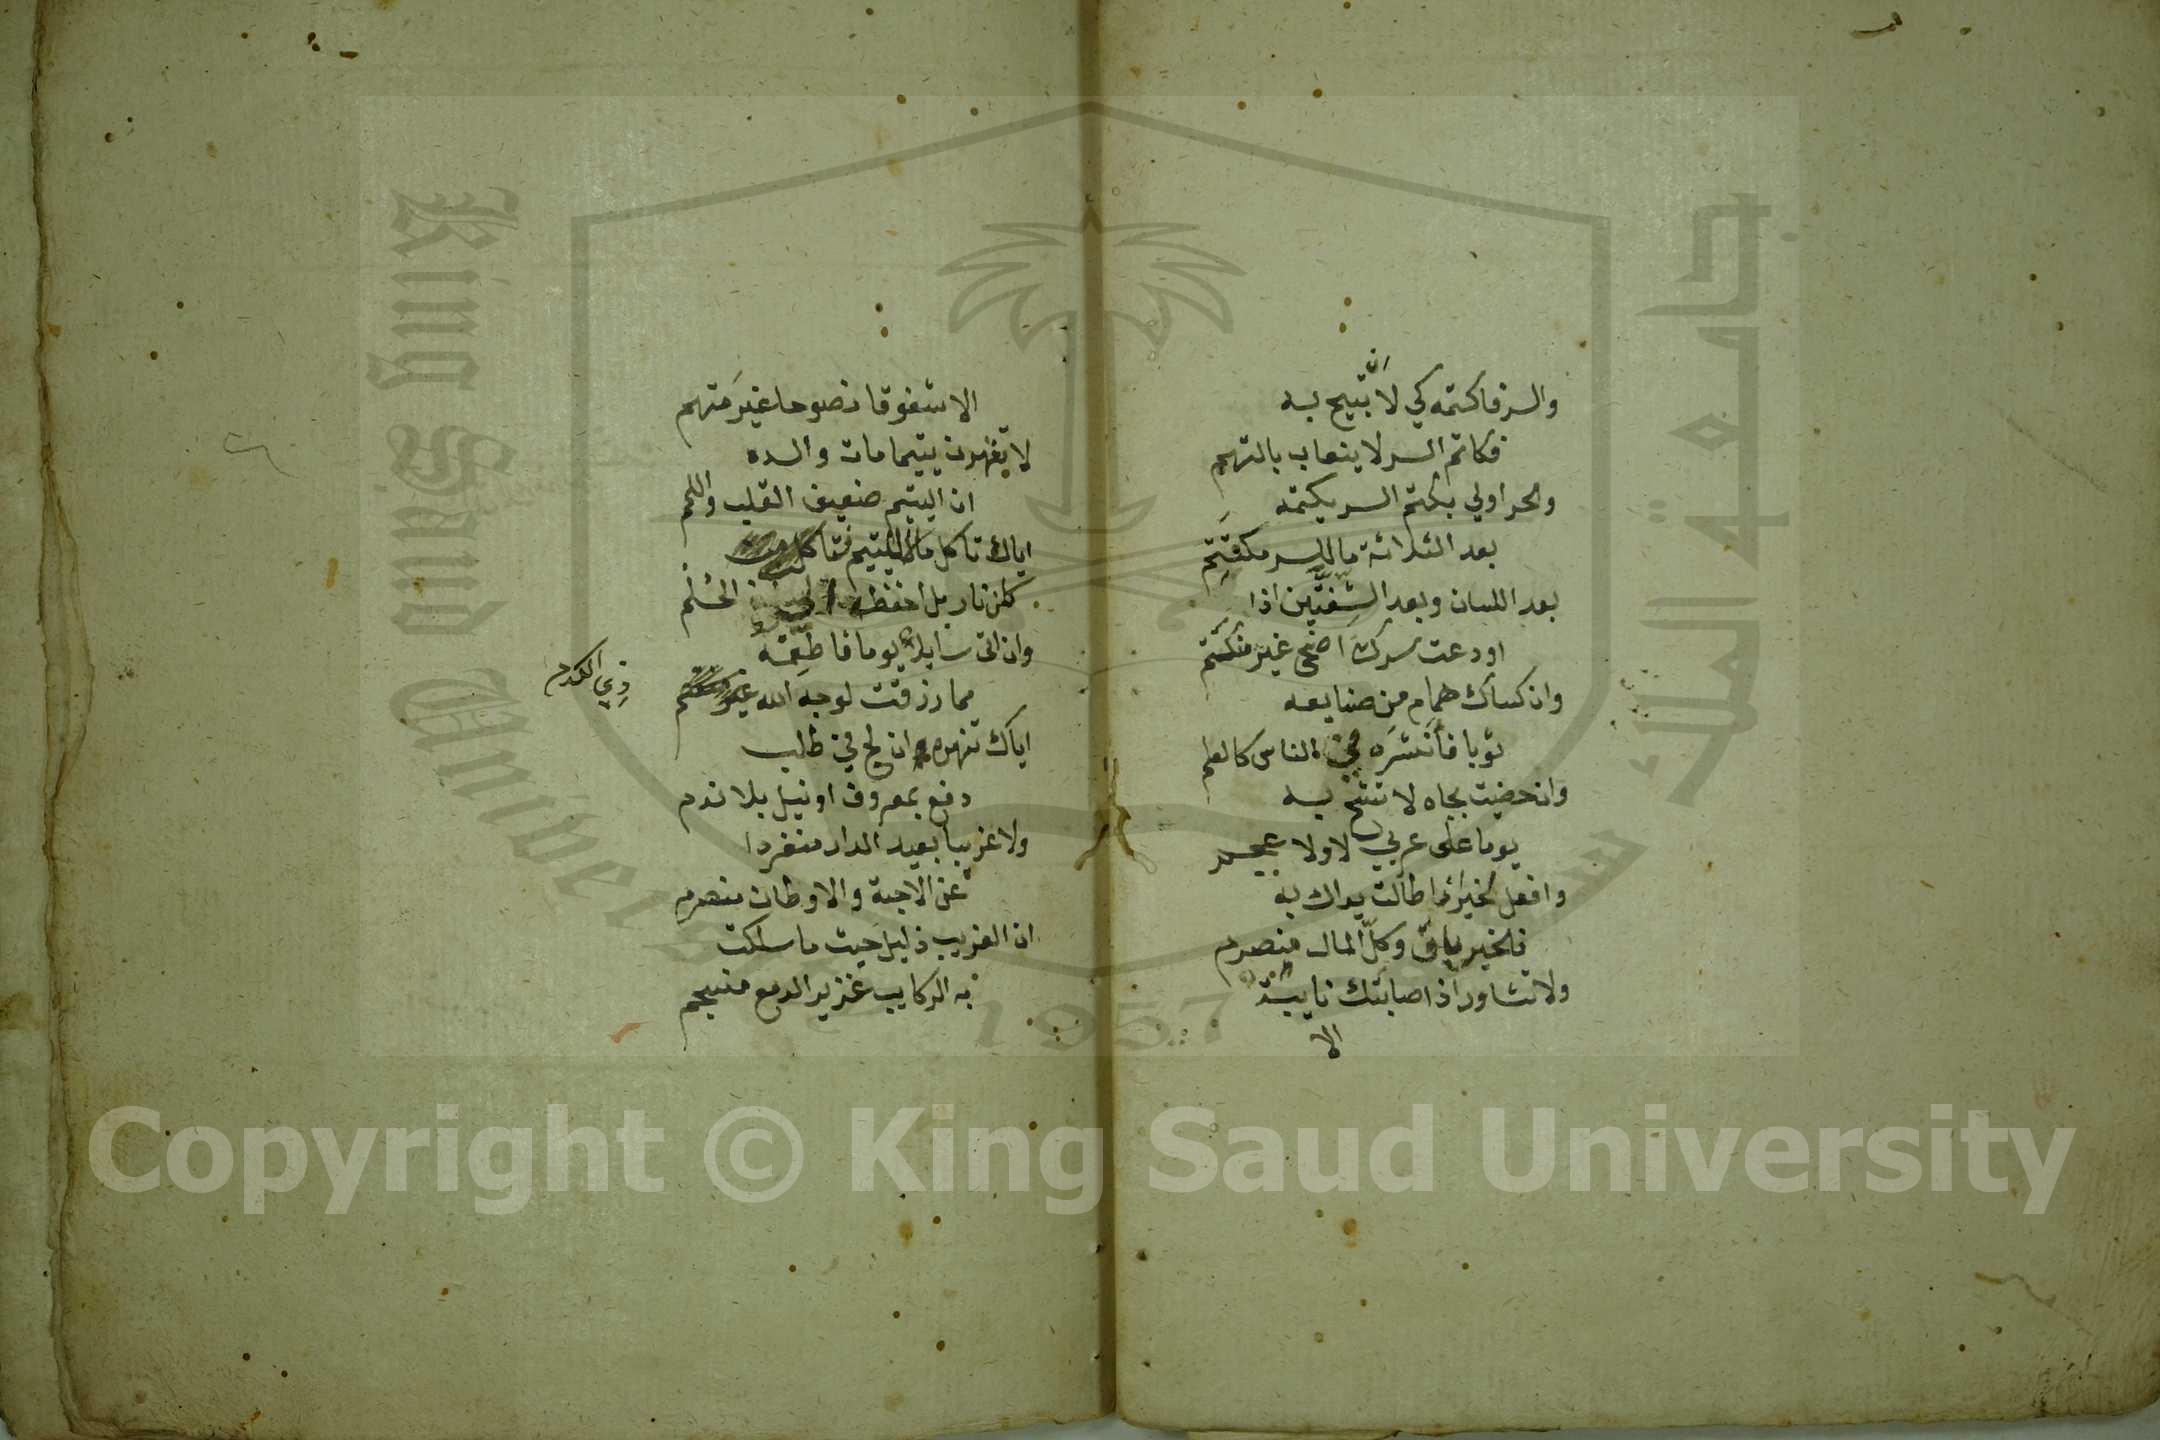 والسر فاكتمه كي لا ان تبيح به
فكاتم السر لا ينعاب بالتهم
والحر اولي بكتم السر يكتمه
بعد الثلاثة ما للسر مكتتم
بعد اللسان وبعد الشفتين اذا
اودعت سرك اضحى غير منكتم
وان كساك همام من صنايعه
ثوبا فأنشره في الناس كالعلم
وان حضيت بجاه لا تشح به
يوما على عربي لا ولا عجم
وافعل الخير ما طالت يداك به
فالخير باق وكل المال منصرم
ولا تشاور اذ اصابتك نايبة
الا
الا شفوقا نصوحا غير متهم
لا تقهرن يتيما مات والده
ان اليتيم ضعيف القلب واللمم
اياك تاكل مال اليتيم فتاكل
كل من نار بل احفظه الحلم
وان اتى سايلا يوما فاطعمه
مما رزقت لوجه الله
ذي الكرم
اياك تنهره ان لح في طلب
دفع بمعروف او نيل بلا ندم
ولا غريبا بعيد الدار منفردا
عن الاحبة والاوطان منصرم
ان الغريب ذليل حيث ما سلكت
به الركايب غزير الدمع منسجم
King Saud University
جامعة الملك سعود
1957
Copyright © King Saud University